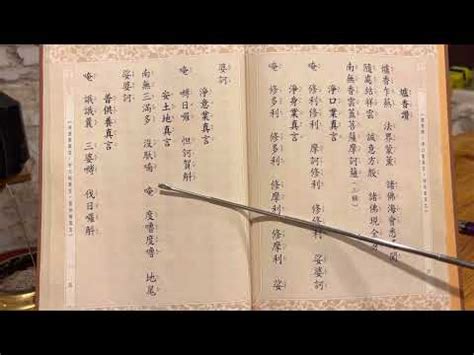 爐香讚
爐香乍爇 法界蒙薰 諸佛海會悉遙聞
隨處結祥雲 誠意方殷 諸佛現全身
南無香雲蓋菩薩摩訶薩(三稱)
淨口業真言
修利修利 摩訶修利 修修利 娑婆訶
淨身業真言
唵 修多利 修多利 修摩利 修摩利 娑
婆訶
淨意業真言
唵 嚩日囉 怛訶賀斛
安土地真言
南無三滿多 沒馱喃 唵 度嚕度嚕 地尾
娑婆訶
普供養真言
唵 誐誐曩 三婆嚩 伐日囉斛